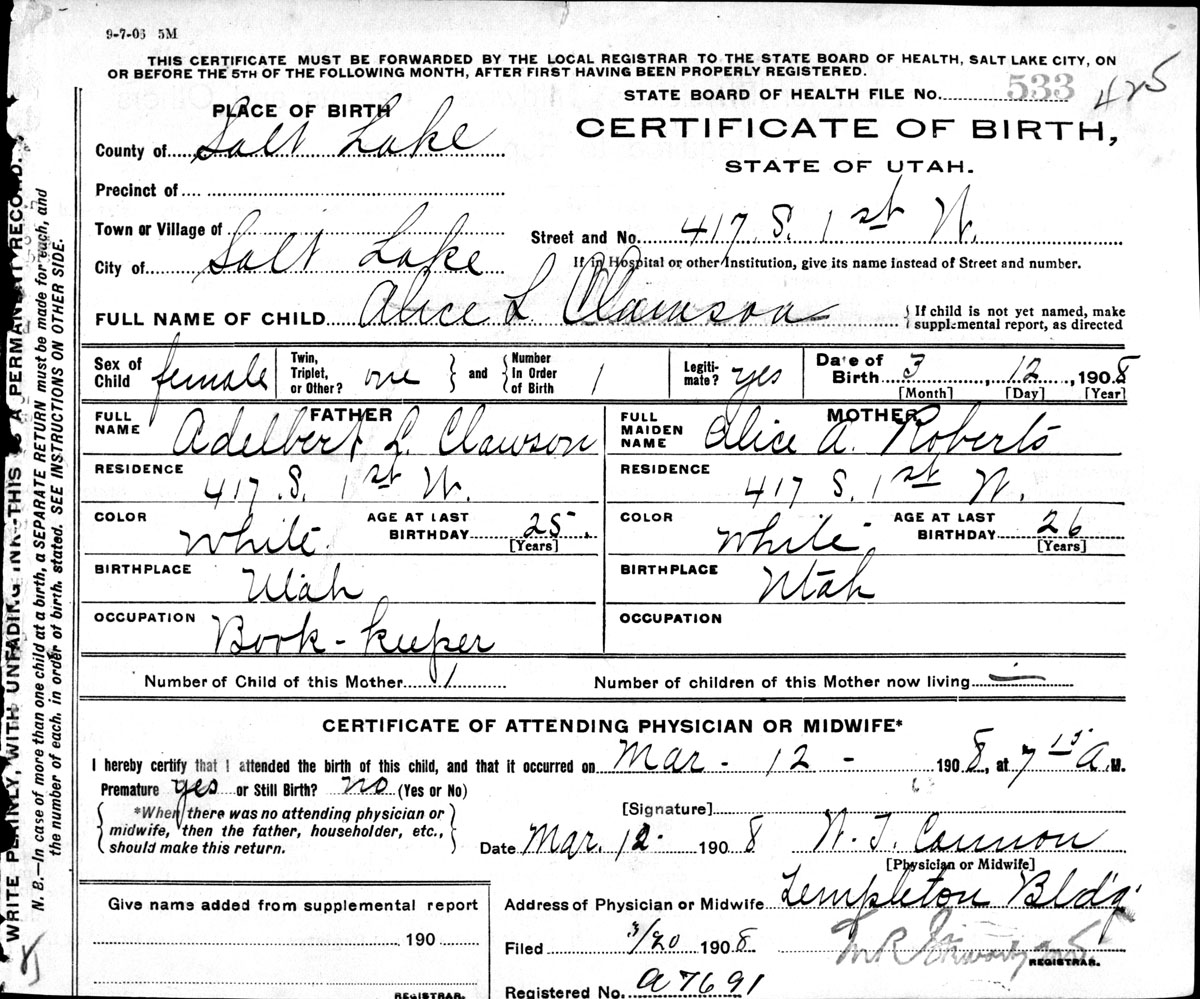 9-7-06 5M
THIS CERTIFICATE MUST BE FORWARDED BY THE LOCAL REGISTRAR TO THE STATE BOARD OF HEALTH, SALT LAKE CITY, ON
OR BEFORE THE 5TH OF THE FOLLOWING MONTH, AFTER FIRST HAVING BEEN PROPERLY REGISTERED.
STATE BOARD OF HEALTH FILE No. 533 425
PLACE OF BIRTH
CERTIFICATE OF BIRTH,
STATE OF UTAH.
County of Salt Lake
Precinct of
Town or Village of
Street and No. 417 S. 1st W.
City of Salt Lake
If in Hospital or other Institution, give its name instead of Street and number.
FULL NAME OF CHILD Alice L Clawson
{ If child is not yet named, make supplemental report, as directed
Sex of Child female
Twin, Triplet, or Other? one } and { Number In Order of Birth 1
Legiti-mate? yes
Date of Birth 3, 12, 1908
[Month] [Day] [Year]
FATHER
FULL NAME Adelbert L. Clawson
RESIDENCE 417 S. 1st W.
COLOR White AGE AT LAST BIRTHDAY 25. [Years]
BIRTHPLACE Utah
OCCUPATION Book-keeper
MOTHER
FULL MAIDEN NAME Alice A. Roberts
RESIDENCE 417 S. 1st W.
COLOR White AGE AT LAST BIRTHDAY 26 [Years]
BIRTHPLACE Utah
OCCUPATION
Number of Child of this Mother 1
Number of children of this Mother now living
CERTIFICATE OF ATTENDING PHYSICIAN OR MIDWIFE*
I hereby certify that I attended the birth of this child, and that it occurred on Mar - 12 - 1908, at 7 15 A. M.
Premature yes or Still Birth? no (Yes or No)
{ *When there was no attending physician or
midwife, then the father, householder, etc.,
should make this return. }
[Signature]
Date Mar. 12 - 1908 W. T. Cannon
[Physician or Midwife]
Give name added from supplemental report
190
REGISTRAR.
Address of Physician or Midwife Templeton Bldg.
Filed 3/20 1908
REGISTRAR.
Registered No. A7691
WRITE PLAINLY, WITH UNFADING INK-THIS IS A PERMANENT RECORD.
N. B.—In case of more than one child at a birth, a SEPARATE RETURN must be made for each, and
the number of each, in order of birth, stated. SEE INSTRUCTIONS ON OTHER SIDE.